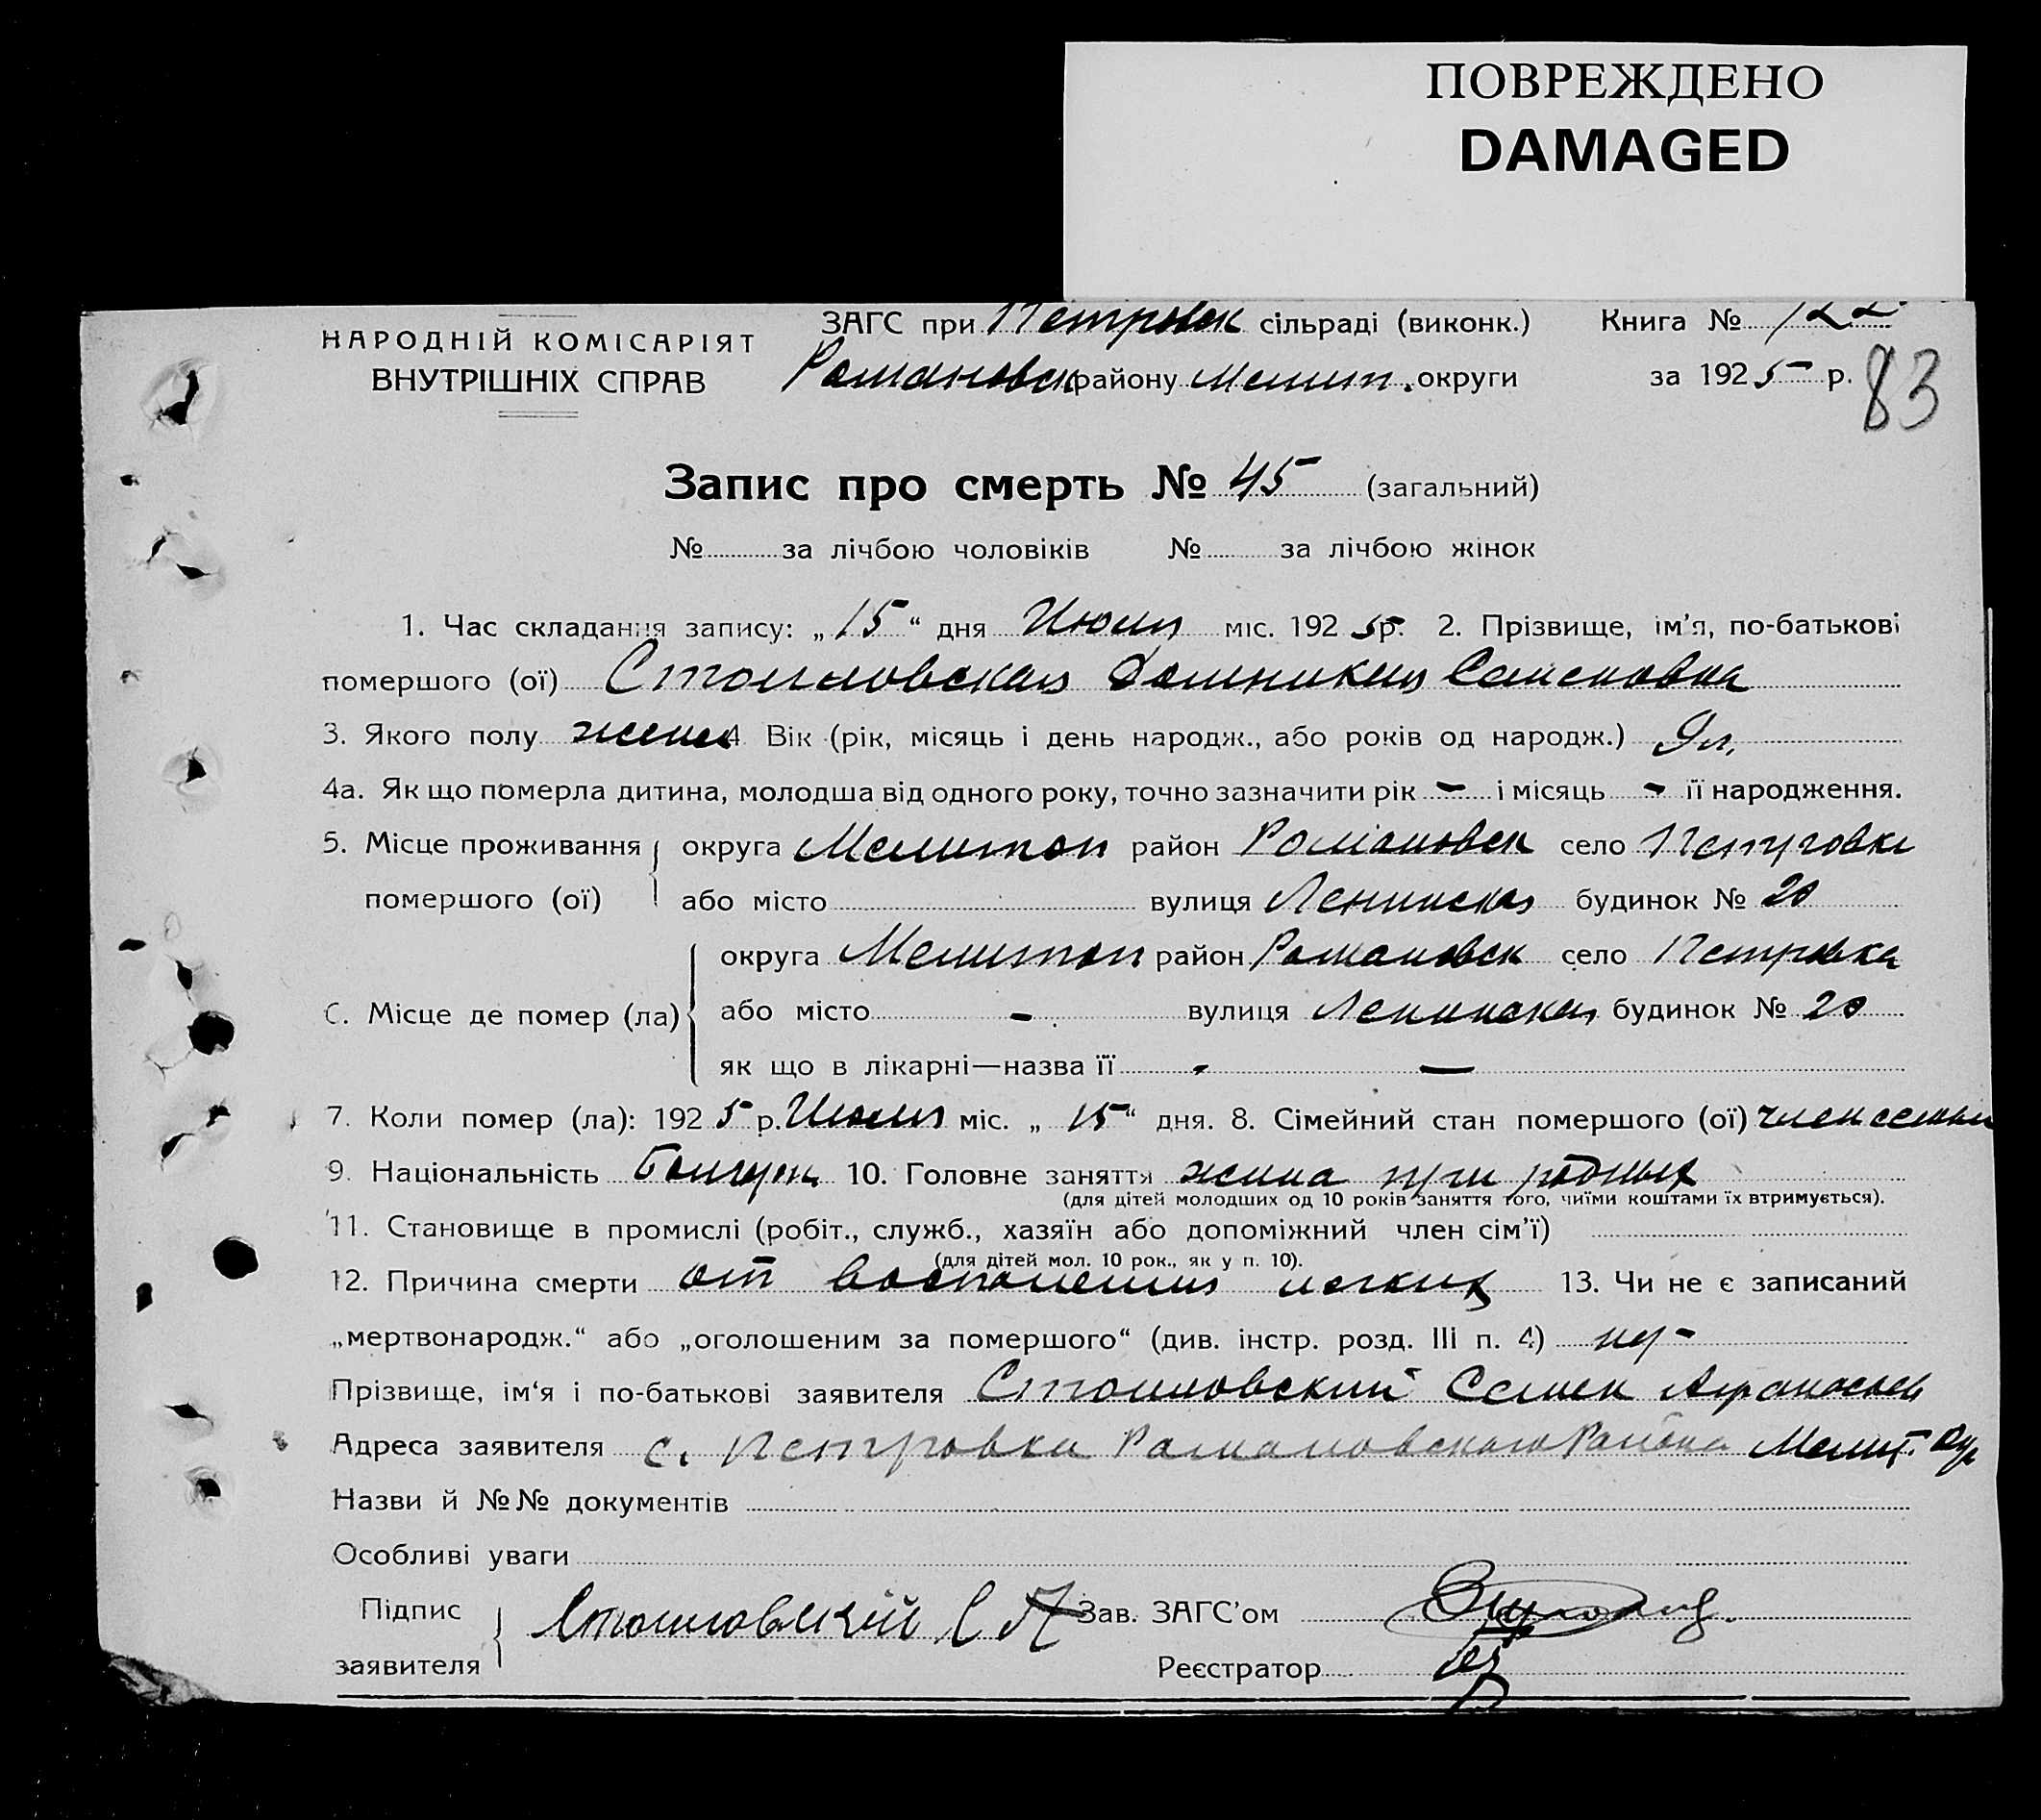 ПОВРЕЖДЕНО
DAMAGED
НАРОДНІЙ КОМІСАРІЯТ
ВНУТРІШНІХ СПРАВ
ЗАГС при Петровск сільраді (виконк.)
Романовск району Мелит. округи
Книга №
за 1925 р.
83
Запис про смерть № 45 (загальний)
№ за лічбою чоловіків № за лічбою жінок
1. Час складання запису: „15“ дня Июля міс. 1925 р. 2. Прізвище, ім’я, по-батькові
помершого (ої) Стоиловская Доменикия Семеновна
3. Якого полу женск 4 Вік (рік, місяць і день народж., або років од народж.) 9 л.
4а. Як що померла дитина, молодша від одного року, точно зазначити рік – і місяць – її народження.
5. Місце проживання округа Мелитоп район Романовск село Петровка
помершого (ої) або місто вулиця Ленинская будинок № 20
округа Мелитоп район Романовск село Петровка
6. Місце де помер (ла) або місто - вулиця Ленинская будинок № 20
як що в лікарні—назва її - —
7. Коли помер (ла): 1925 р. Июля міс. „15“ дня. 8. Сімейний стан помершого (ої) член семьи
9. Національність Болгарк 10. Головне заняття жила при родных
(для дітей молодших од 10 років заняття того, чиїми коштами їх втримується).
11. Становище в промислі (робіт., служб., хазяїн або допоміжний член сім’ї)
(для дітей мол. 10 рок., як у п. 10).
12. Причина смерти от воспаления легких 13. Чи не є записаний
„мертвонародж.“ або „оголошеним за помершого“ (див. інстр. розд. III п. 4) нет
Прізвище, ім‘я і по-батькові заявителя Стоиловский Семен Афанасьев
Адреса заявителя с. Петровка Романовского Района Мелит. Окр
Назви й №№ документів
Особливі уваги
Підпис
заявителя
Стоиловский С А
Зав. ЗАГС’ом
Реєстратор